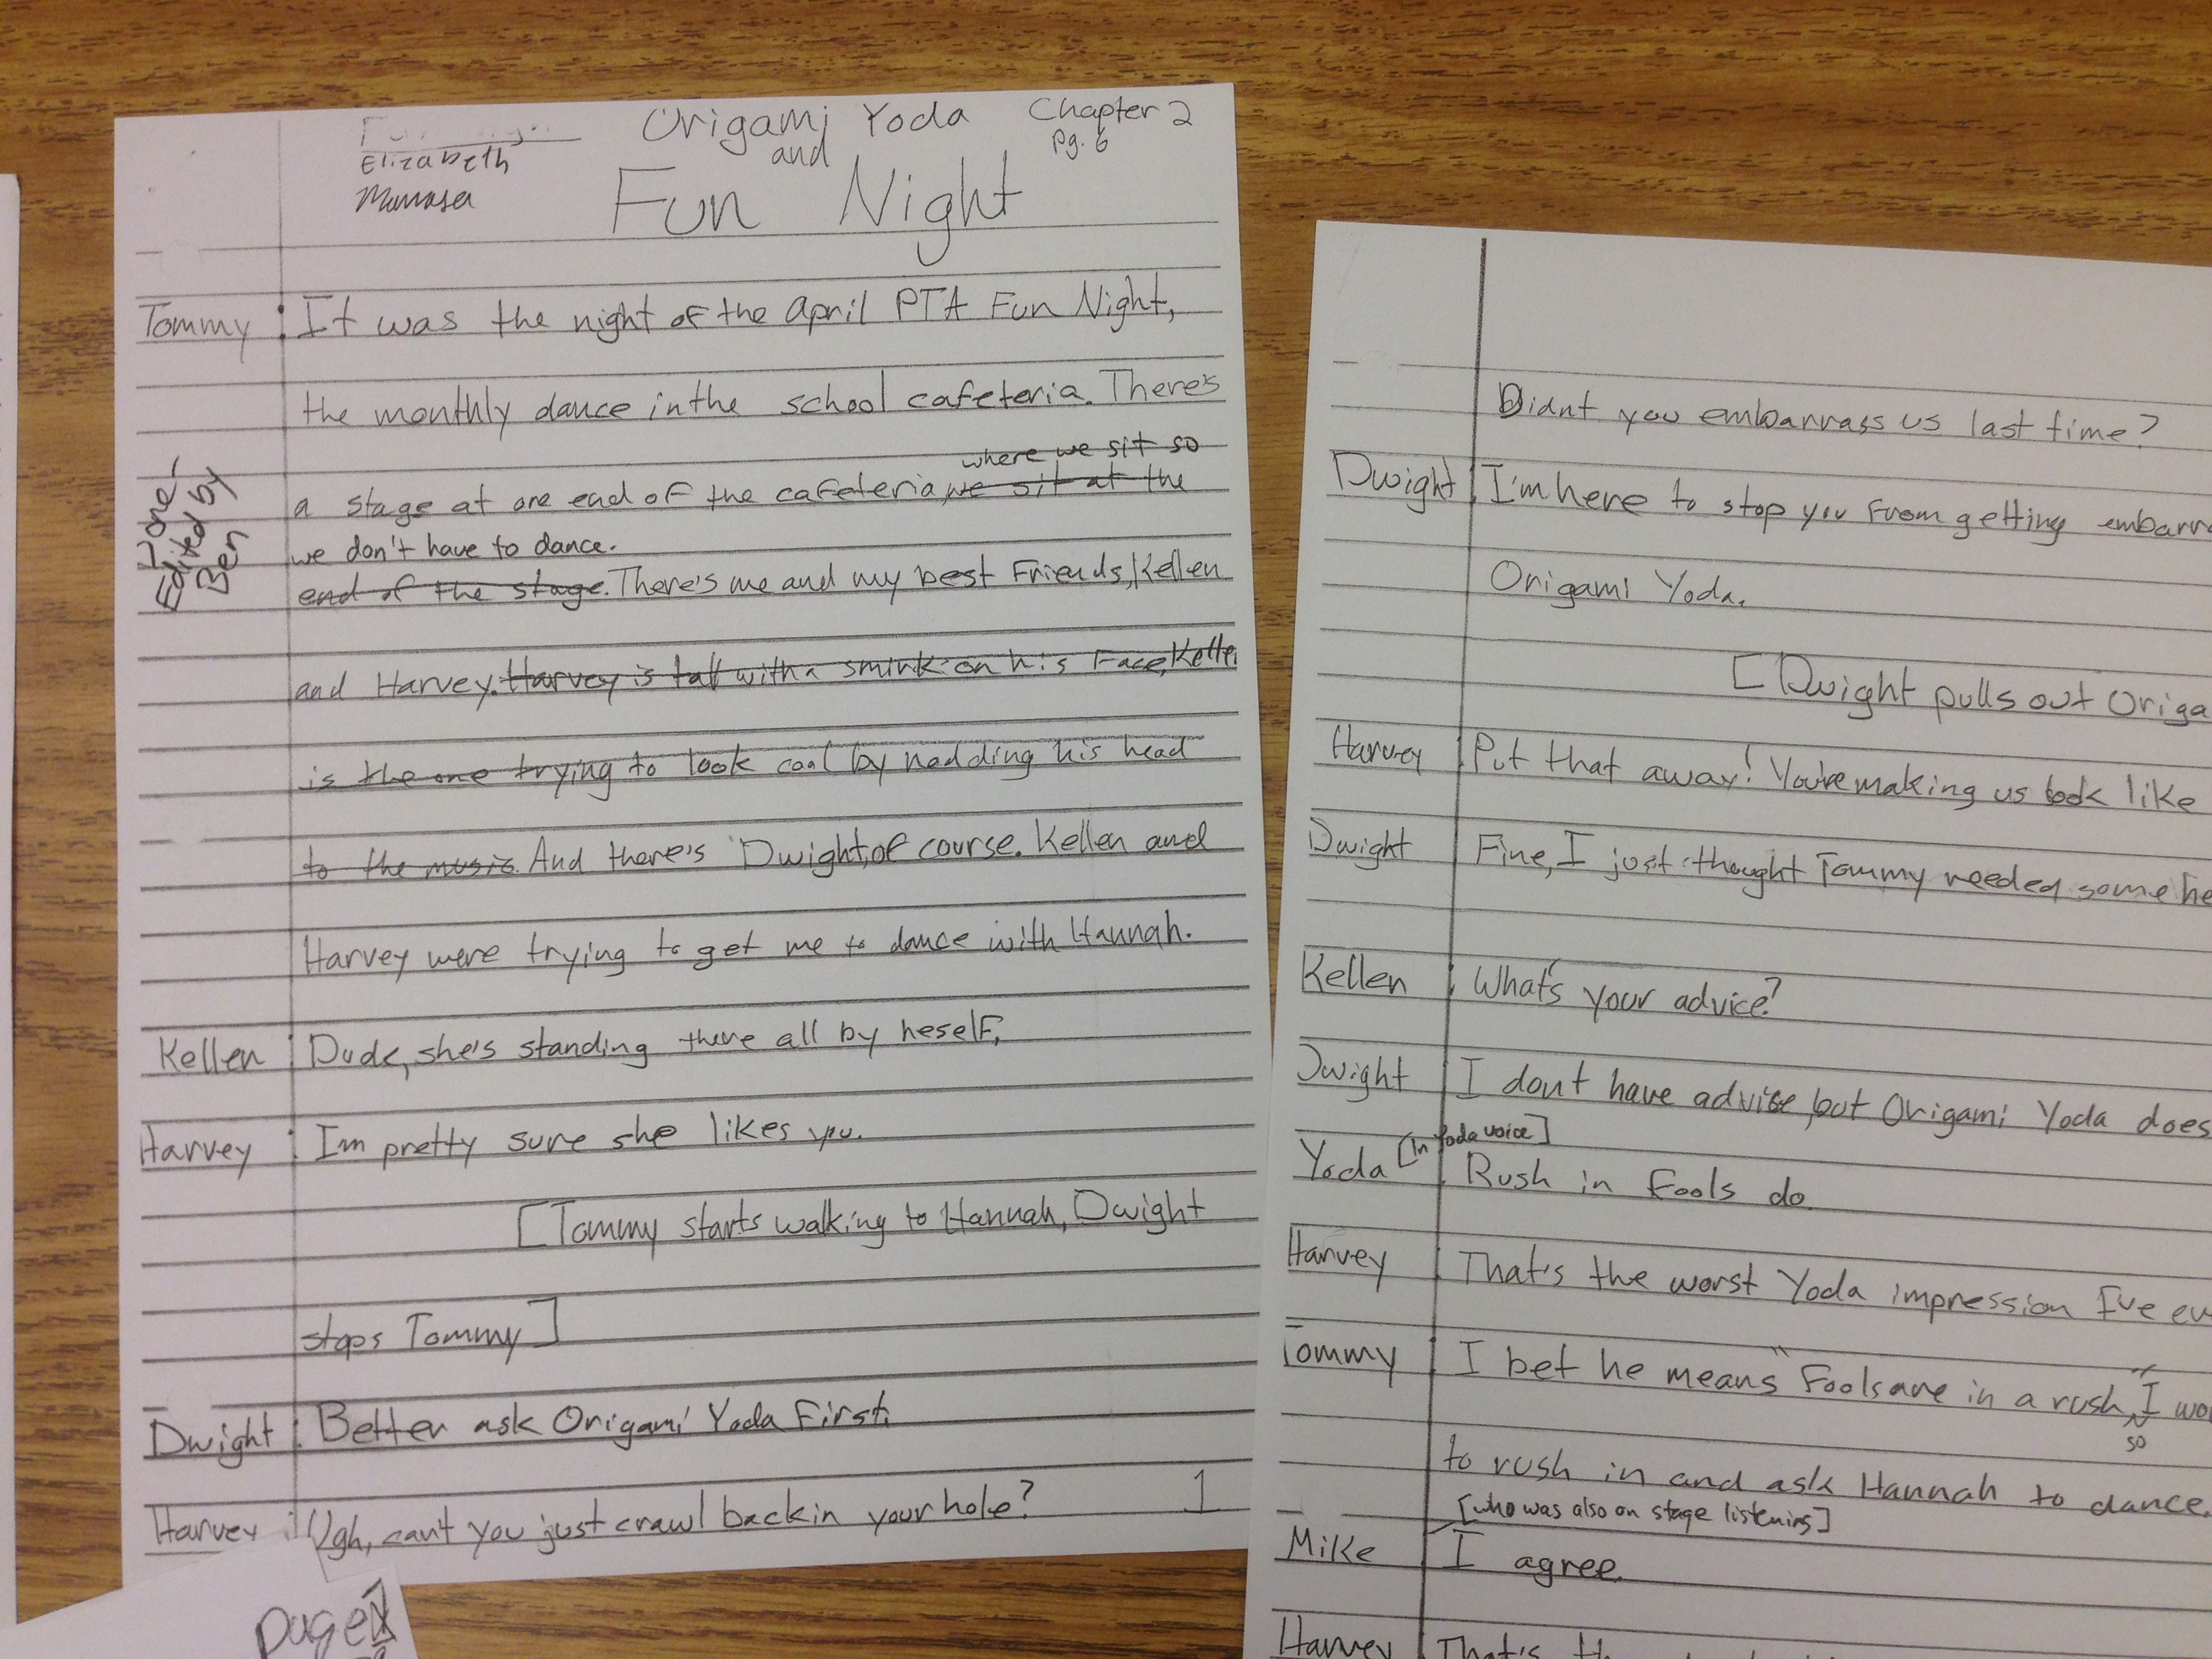 Origami Yoda Chapter 2
and pg. 6
Elizabeth
Fun Night
Tommy : It was the night of the april PTA Fun Night,
the monthly dance in the school cafeteria. There's
where we sit so
a stage at one end of the cafeteria, we sit at the
we don't have to dance.
end of the stage. There's me and my best Friends, Kellen
and Harvey. Harvey is tall with a smirk on his Face, Kellen
is the one trying to look cool by nodding his head
to the music. And there's Dwight, of course. Kellen and
Harvey were trying to get me to dance with Hannah.
Kellen : Dude, she's standing there all by heself,
Harvey : Im pretty sure she likes you.
[Tommy starts walking to Hannah, Dwight
stops Tommy]
Dwight : Better ask Origami Yoda First.
Harvey : Ugh, can't you just crawl back in your hole?
1
Done-
Edited by
Ben
page
Didnt you embarrass us last time?
Dwight : I'm here to stop you From getting embarr
Origami Yoda.
[Dwight pulls out Origa
Harvey : Put that away! You're making us look like
Dwight : Fine, I just thought Tommy needed some he
Kellen : What's your advice?
Dwight : I dont have advise, but Origami Yoda does
[In Yoda voice]
Yoda : Rush in Fools do.
Harvey : That's the worst Yoda impression I've ev
Tommy : I bet he means "Fools are in a rush", I wo
so
to rush in and ask Hannah to dance.
[who was also on stage listening]
Mike I agree.
Harvey That's th